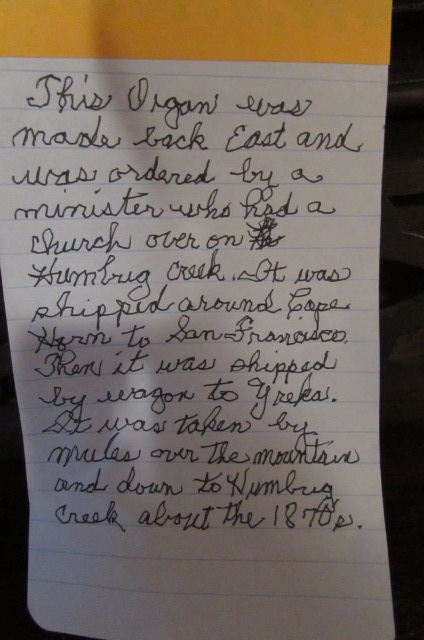 This Organ was
made back East and
was ordered by a
minister who had a
church over on
Humbug Creek. It was
shipped around Cape
Horn to San-Francisco.
Then it was shipped
by wagon to Yreka.
It was taken by
mules over the mountain
and down to Humbug
Creek about the 1870s.